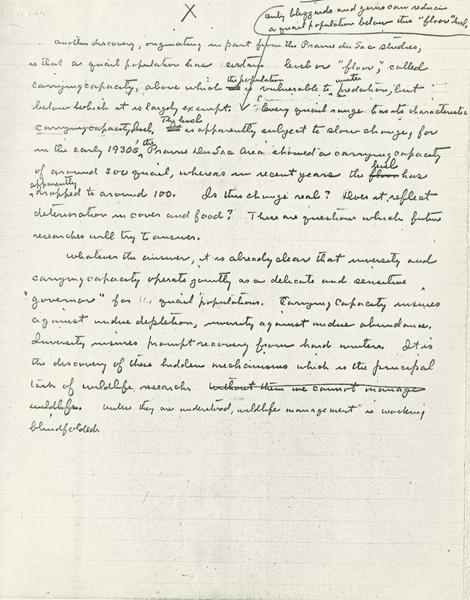 X
only blizzards and guns can reduce
a quail population below this "floor" level.
another discovery, originating in part from the Prairie du Sac studies,
is that a quail population has a certain level or "floor," called
carrying capacity, above which the population is vulnerable to winter predation, but
below which it is largely exempt. Every quail range has its characteristic
carrying capacity level. This level is apparently subject to slow change, for
in the early 1930s the Prairie Du Sac Area showed a carrying capacity
of around 300 quail, whereas in recent years the floor level has
apparently dropped to around 100. Is this change real? Does it reflect
deterioration in cover and food? These are questions which future
researches will try to answer.
Whatever the answer, it is already clear that inversity and
carrying capacity operate jointly as a delicate and sensitive
"governor" for quail populations. Carrying capacity insures
against undue depletion, inversity against undue abundance.
Inversity insures prompt recovery from hard winters. It is
the discovery of these hidden mechanisms which is the principal
task of wildlife research. without them we cannot manage
wildlife. Unless they are understood, wildlife "management" is working
blindfolded.